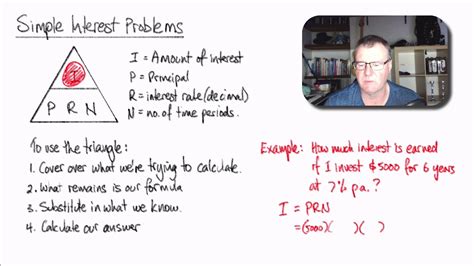 Simple Interest Problems
I
P R N
I = Amount of interest
P = Principal
R = interest rate (decimal)
N = no. of time periods.
To use the triangle:
1. Cover over what we're trying to calculate.
2. What remains is our formula
3. Substitute in what we know.
4. Calculate our answer
Example: How much interest is earned
if I invest $5000 for 6 years
at 7% pa.?
I = PRN
= (5000)( )( )